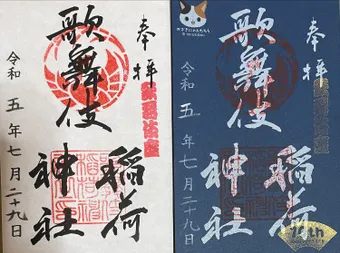 奉拝
歌舞伎
稲荷
神社
令和五年七月二十九日
奉拝
歌舞伎
稲荷
神社
令和五年七月二十九日